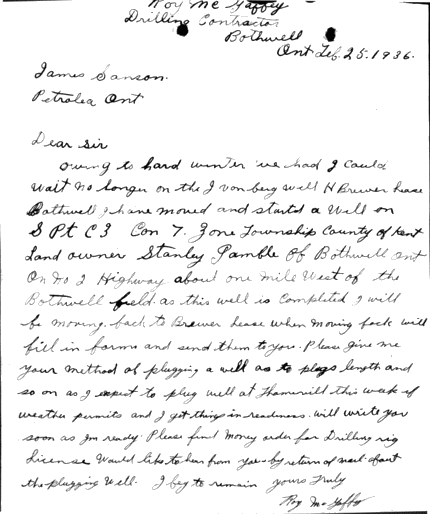 Roy Mc Gaffey
Drilling Contractor
Bothwell
Ont Feb. 25. 1936.
James Sanson.
Petrolea Ont
Dear Sir
owing to hard winter we had I could
wait no longer on the J von berg well H Brewer lease
Bothwell I have moved and started a well on
S Pt C3 Con 7. Zone Township County of Kent
Land owner Stanley Gamble of Bothwell ont
On No 2 Highway about one mile West of the
Bothwell field. as this well is completed I will
be moving back to Brewer lease when moving back will
fill in forms and send them to you. Please give me
your method of plugging a well as to plugs length and
so on as I expect to plug well at Thamesville this week if
weather permits and I get things in readiness. will write you
soon as Im ready. Please find Money order for Drilling rig
License Would like to hear from you by return of mail about
the plugging Well. I beg to remain yours Truly
Roy Mc Gaffey